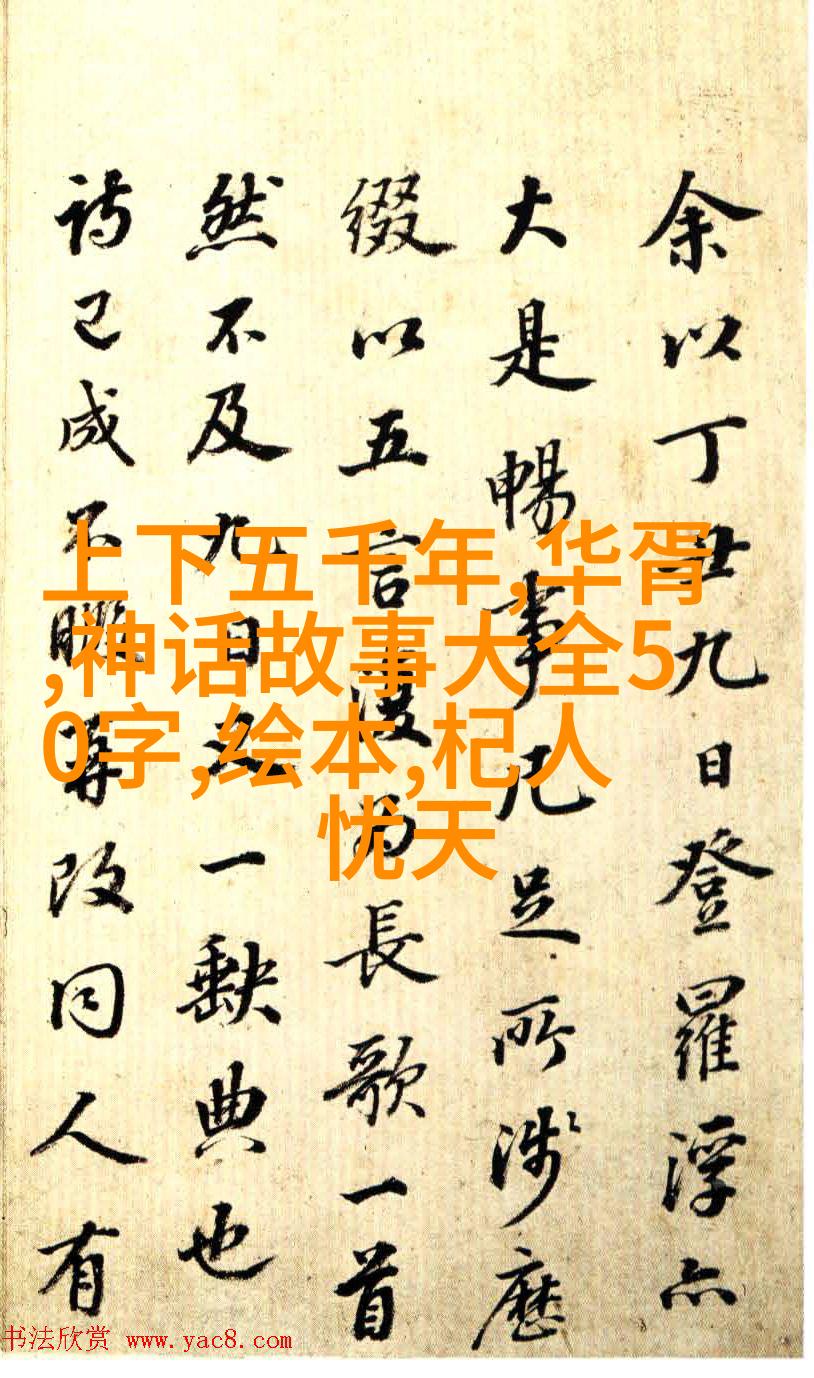 余以丁丑九日登羅浮亦
大是暢事凡足所涉歷
綴以五言為長歌一首
然不及九日一缺典也
詩已成不暇再改同人有
上下五千年,华胥
,神话故事大全5
0字,绘本,杞人
忧天
书法欣赏 www.yac8.com